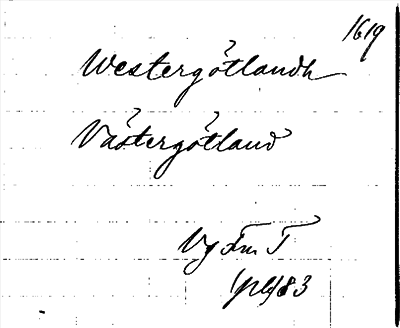 1619
Westergötlandh
Västergötland
Vg Fm T